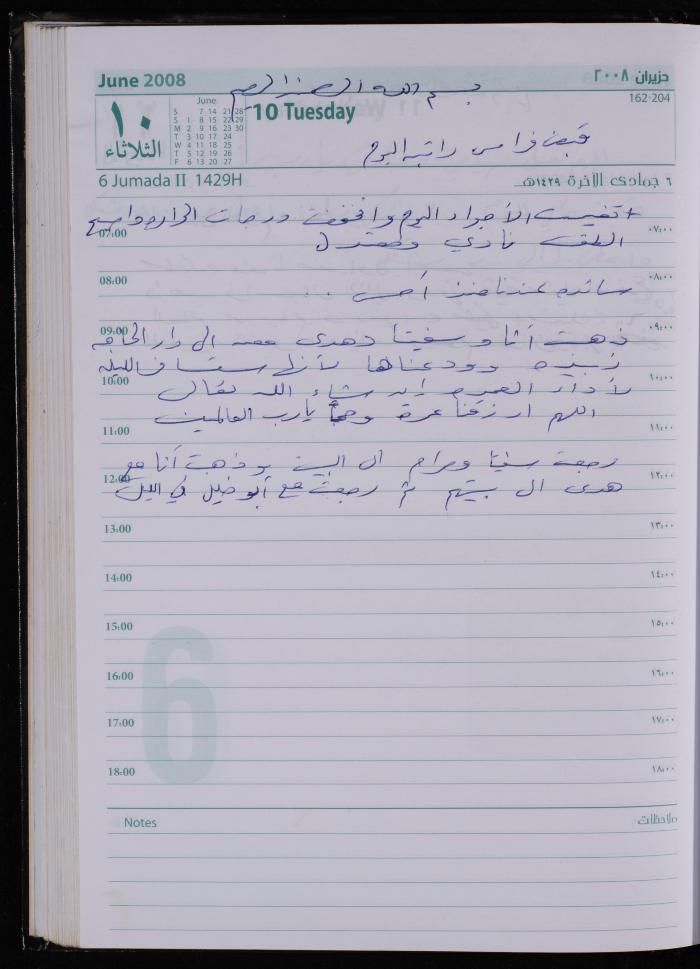 June 2008
حزيران ٢٠٠٨
بسم الله الرحمن الرحيم
١٠
الثلاثاء
June
S 7 14 21 28
S 1 8 15 22 29
M 2 9 16 23 30
T 3 10 17 24
W 4 11 18 25
T 5 12 19 26
F 6 13 20 27
10 Tuesday
162-204
قبض فراس راتبه اليوم
6 Jumada II 1429H
٦ جمادى الآخرة ١٤٢٩هـ
تغيرت الأجواء اليوم وانخفضت درجات الحرارة وأصبح
07:00
٠٧:٠٠
الطقس نادي ومعتدل
08:00
٠٨:٠٠
سائده عندنا منذ أمس ..
09:00
٠٩:٠٠
ذهبت أنا وسفيتا وهدى الى دار الحاجه
زبيده وودعناها لأنها ستسافر الليله
10:00
١٠:٠٠
لأداء العمره إن شاء الله تعالى
اللهم ارزقنا عمرة وحجاً يارب العالمين
11:00
١١:٠٠
رجعت سفيتا ومرام الى البيت وذهبت أنا مع
12:00
١٢:٠٠
هدى الى بيتهم ثم رجعت مع أبو فضيل في الليل
13:00
١٣:٠٠
14:00
١٤:٠٠
15:00
١٥:٠٠
16:00
١٦:٠٠
17:00
١٧:٠٠
18:00
١٨:٠٠
6
Notes
ملاحظات